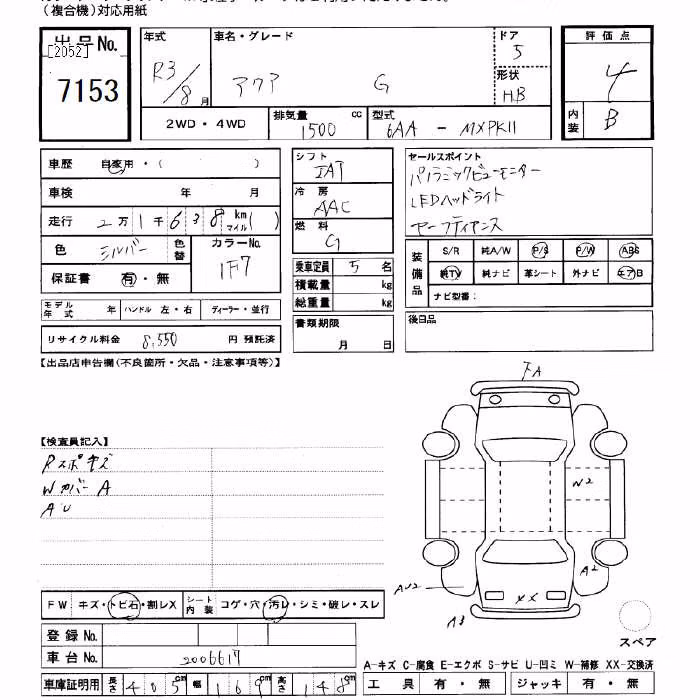 (複合機)対応用紙
出品No.
[2052]
7153
年式
R3/8月
車名・グレード
アクア G
ドア
5
形状
HB
評価点
4
内装
B
2WD・4WD
排気量
1500 cc
型式
6AA - MXPK11
車歴 自家用・( )
車検 年 月
走行 2万1千638 km マイル( )
色 シルバー 色替
カラーNo.
1F7
保証書 有・無
モデル年式 年 ハンドル 左・右 ディーラー・並行
リサイクル料金 8,550 円 預託済
シフト
IAT
冷房
AAC
燃料
G
乗車定員 5 名
積載量 kg
総重量 kg
書類期限
月 日
セールスポイント
パノラミックビューモニター
LEDヘッドライト
セーフティセンス
装備品
S/R 純A/W P/S P/W ABS
純TV 純ナビ 革シート 外ナビ エアB
ナビ型番:
後日品
【出品店申告欄(不良箇所・欠品・注意事項等)】
【検査員記入】
Rスポキズ
Wカバー A
AU
FA
W2
A2
AU2
XX
A3
スペア
FW キズ・トビ石・割レX
シート内装 コゲ・穴・汚レ・シミ・破レ・スレ
登録No.
車台No. 2006617
車庫証明用 長さ 405cm 幅 169cm 高さ 148cm
A-キズ C-腐食 E-エクボ S-サビ U-凹ミ W-補修 XX-交換済
工具 有・無 ジャッキ 有・無